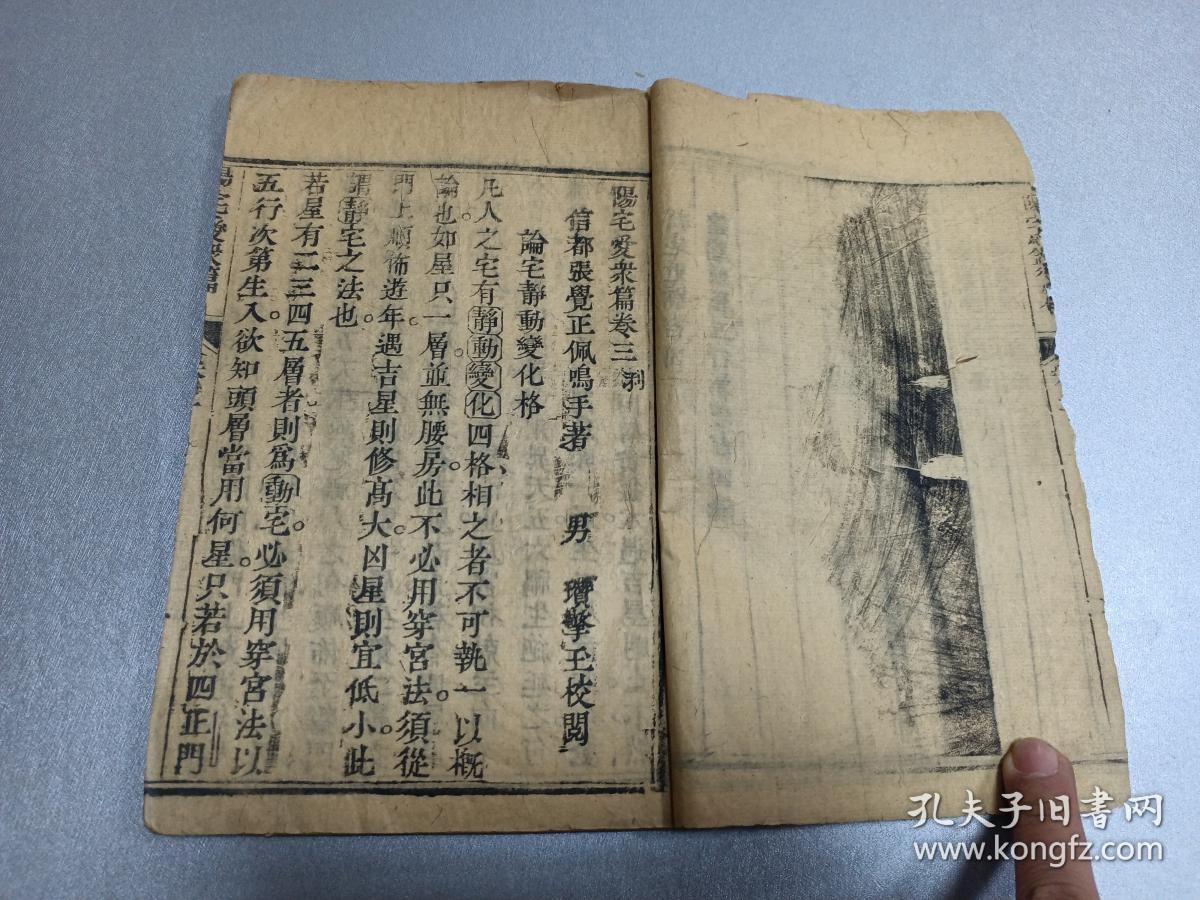 陽宅愛衆篇卷三利
信都張覺正佩鳴手著 男 瓚擎玉校閱
論宅靜動變化格
凡人之宅有靜動變化四格相之者不可執一以概
論也。如屋只一層並無腰房。此不必用穿宮法。須從
門上順佈遊年。遇吉星則修高大。凶星則宜低小。此
謂靜宅之法也。
若屋有二三四五層者則爲動宅。必須用穿宮法以
五行次第生入。欲知頭層當用何星。只若於四正門
孔夫子旧书网
www.kongfz.com